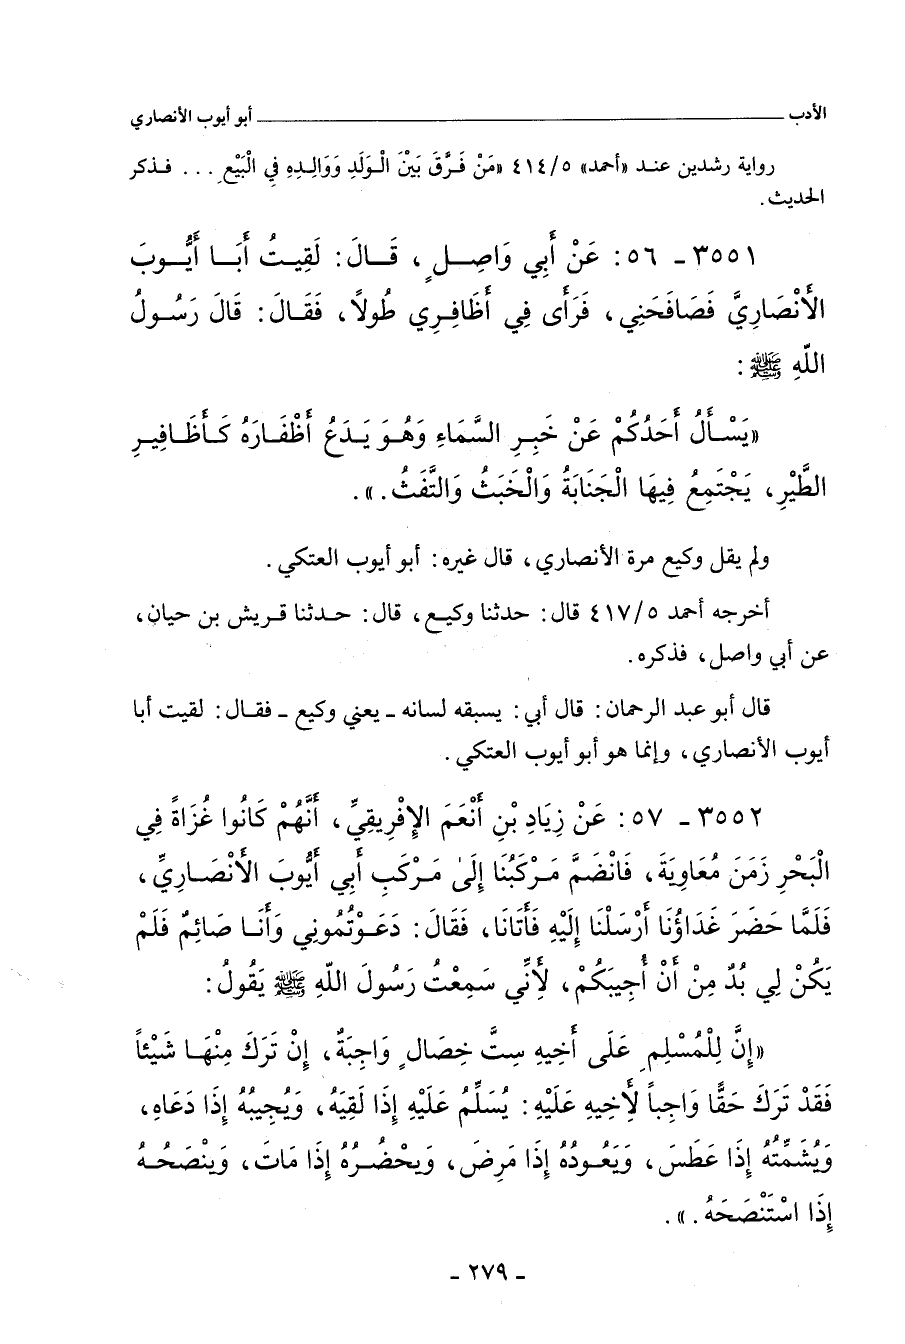 الأدب ـــــــــــــــــــــــــــــــــــــــــ أبو أيوب الأنصاري
رواية رشدين عند «أحمد» ٤١٤/٥ «مَنْ فَرَّقَ بَيْنَ الْوَلَدِ وَوَالِدِهِ فِي الْبَيْعِ ... فذكر
الحديث.
٣٥٥١ - ٥٦: عَنْ أَبِي وَاصِلٍ، قَالَ: لَقِيتُ أَبَا أَيُّوبَ
الأَنْصَارِيَّ فَصَافَحَنِي، فَرَأَى فِي أَظَافِرِي طُولاً، فَقَالَ: قَالَ رَسُولُ
اللَّهِ ﷺ:
«يَسْأَلُ أَحَدُكُمْ عَنْ خَبِرِ السَّمَاءِ وَهُوَ يَدَعُ أَظْفَارَهُ كَأَظَافِيرِ
الطَّيْرِ، يَجْتَمِعُ فِيهَا الْجَنَابَةُ وَالْخَبَثُ وَالتَّفَثُ.».
ولم يقل وكيع مرة الأنصاري، قال غيره: أبو أيوب العتكي.
أخرجه أحمد ٤١٧/٥ قال: حدثنا وكيع، قال: حدثنا قريش بن حيان،
عن أبي واصل، فذكره.
قال أبو عبد الرحمان: قال أبي: يسبقه لسانه - يعني وكيع - فقال: لقيت أبا
أيوب الأنصاري، وإنما هو أبو أيوب العتكي.
٣٥٥٢ - ٥٧: عَنْ زِيَادِ بْنِ أَنْعَمَ الإِفْرِيقِيِّ، أَنَّهُمْ كَانُوا غُزَاةً فِي
الْبَحْرِ زَمَنَ مُعَاوِيَةَ، فَانْضَمَّ مَرْكَبُنَا إِلَىٰ مَرْكَبِ أَبِي أَيُّوبَ الأَنْصَارِيِّ،
فَلَمَّا حَضَرَ غَدَاؤُنَا أَرْسَلْنَا إِلَيْهِ فَأَتَانَا، فَقَالَ: دَعَوْتُمُونِي وَأَنَا صَائِمٌ فَلَمْ
يَكُنْ لِي بُدٌ مِنْ أَنْ أُجِيبَكُمْ، لأَنِّي سَمِعْتُ رَسُولَ اللَّهِ ﷺ يَقُولُ:
«إِنَّ لِلْمُسْلِمِ عَلَى أَخِيهِ سِتَّ خِصَالٍ وَاجِبَةٌ، إِنْ تَرَكَ مِنْهَا شَيْئاً
فَقَدْ تَرَكَ حَقًّا وَاجِباً لأَخِيهِ عَلَيْهِ: يُسَلِّمُ عَلَيْهِ إِذَا لَقِيَهُ، وَيُجِيبُهُ إِذَا دَعَاهِ،
وَيُشَمِّتُهُ إِذَا عَطَسَ، وَيَعُودُهُ إِذَا مَرِضَ، وَيَحْضُرُهُ إِذَا مَاتَ، وَيَنْصَحُهُ
إِذَا اسْتَنْصَحَهُ.».
- ٢٧٩ -